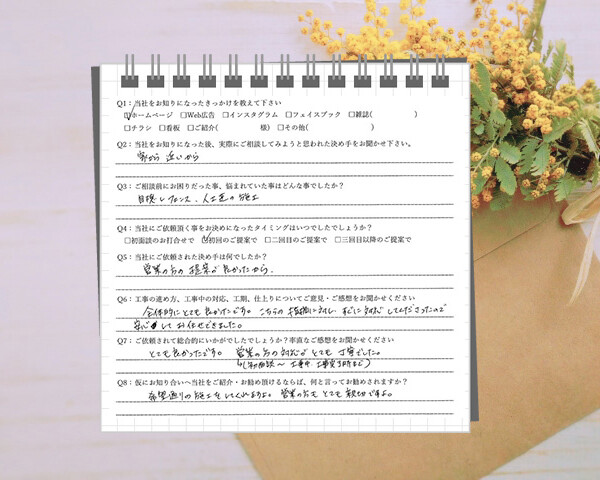 Q1：当社をお知りになったきっかけを教えて下さい
☑ホームページ □Web広告 □インスタグラム □フェイスブック □雑誌( )
□チラシ □看板 □ご紹介( 様) □その他( )
Q2：当社をお知りになった後、実際にご相談してみようと思われた決め手をお聞かせ下さい。
家から近いから
Q3：ご相談前にお困りだった事、悩まれていた事はどんな事でしたか？
目隠しフェンス、人工芝の施工
Q4：当社にご依頼頂く事をお決めになったタイミングはいつでしたでしょうか？
□初面談のお打合せで ☑初回のご提案で □二回目のご提案で □三回目以降のご提案で
Q5：当社にご依頼された決め手は何でしたか？
営業の方の提案が良かったから。
Q6：工事の進め方、工事中の対応、工期、仕上りについてご意見・ご感想をお聞かせください
全体的にとても良かったです。こちらの指摘に対し、すぐに対応してくださったので
安心してお任せできました。
Q7：ご依頼されて総合的にいかがでしたでしょうか？率直なご感想をお聞かせください
とても良かったです。営業の方の対応がとても丁寧でした。
(初面談〜工事中、工事完了時まで)
Q8：仮にお知り合いへ当社をご紹介・お勧め頂けるならば、何と言ってお勧めされますか？
希望通りの施工をしてくれますよ。営業の方もとても親切ですよ。